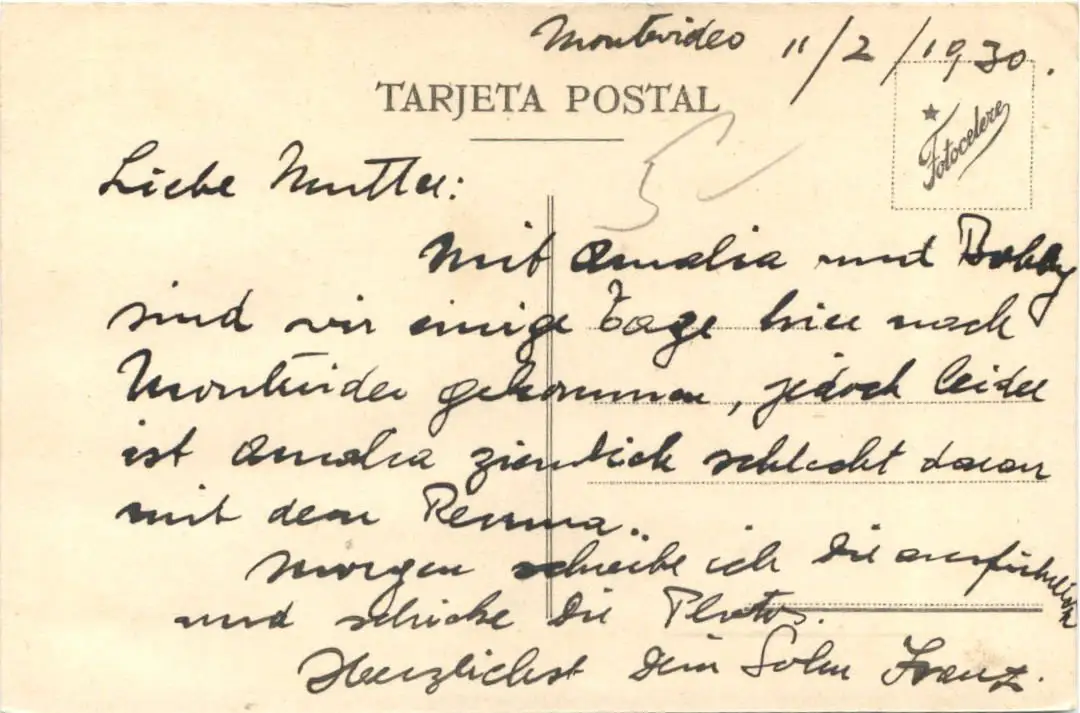 Montevideo 11/2/1930.
TARJETA POSTAL
Fotocelere
Liebe Mutter:
Mit Amalia und Bobby
sind wir einige Tage hier nach
Montevideo gekommen, jedoch leider
ist Amalia ziemlich schlecht daran
mit dem Reuma.
Morgen schreibe ich Dir ausführlich
und schicke Dir Photos.
Herzlichst Dein Sohn Franz.